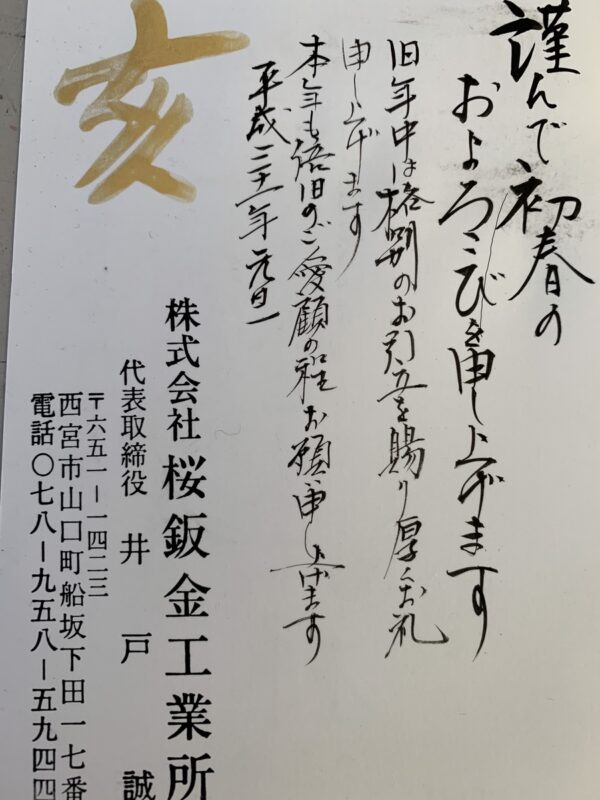 謹んで初春の
およろこびを申し上げます
旧年中は格別のお引立を賜り厚くお礼
申し上げます
本年も倍旧のご愛顧の程お願い申し上げます
平成三十一年元旦
亥
株式会社 桜鈑金工業所
代表取締役 井戸 誠
〒六五一－一四二三
西宮市山口町船坂下田一七番
電話〇七八－九五八－五九四四